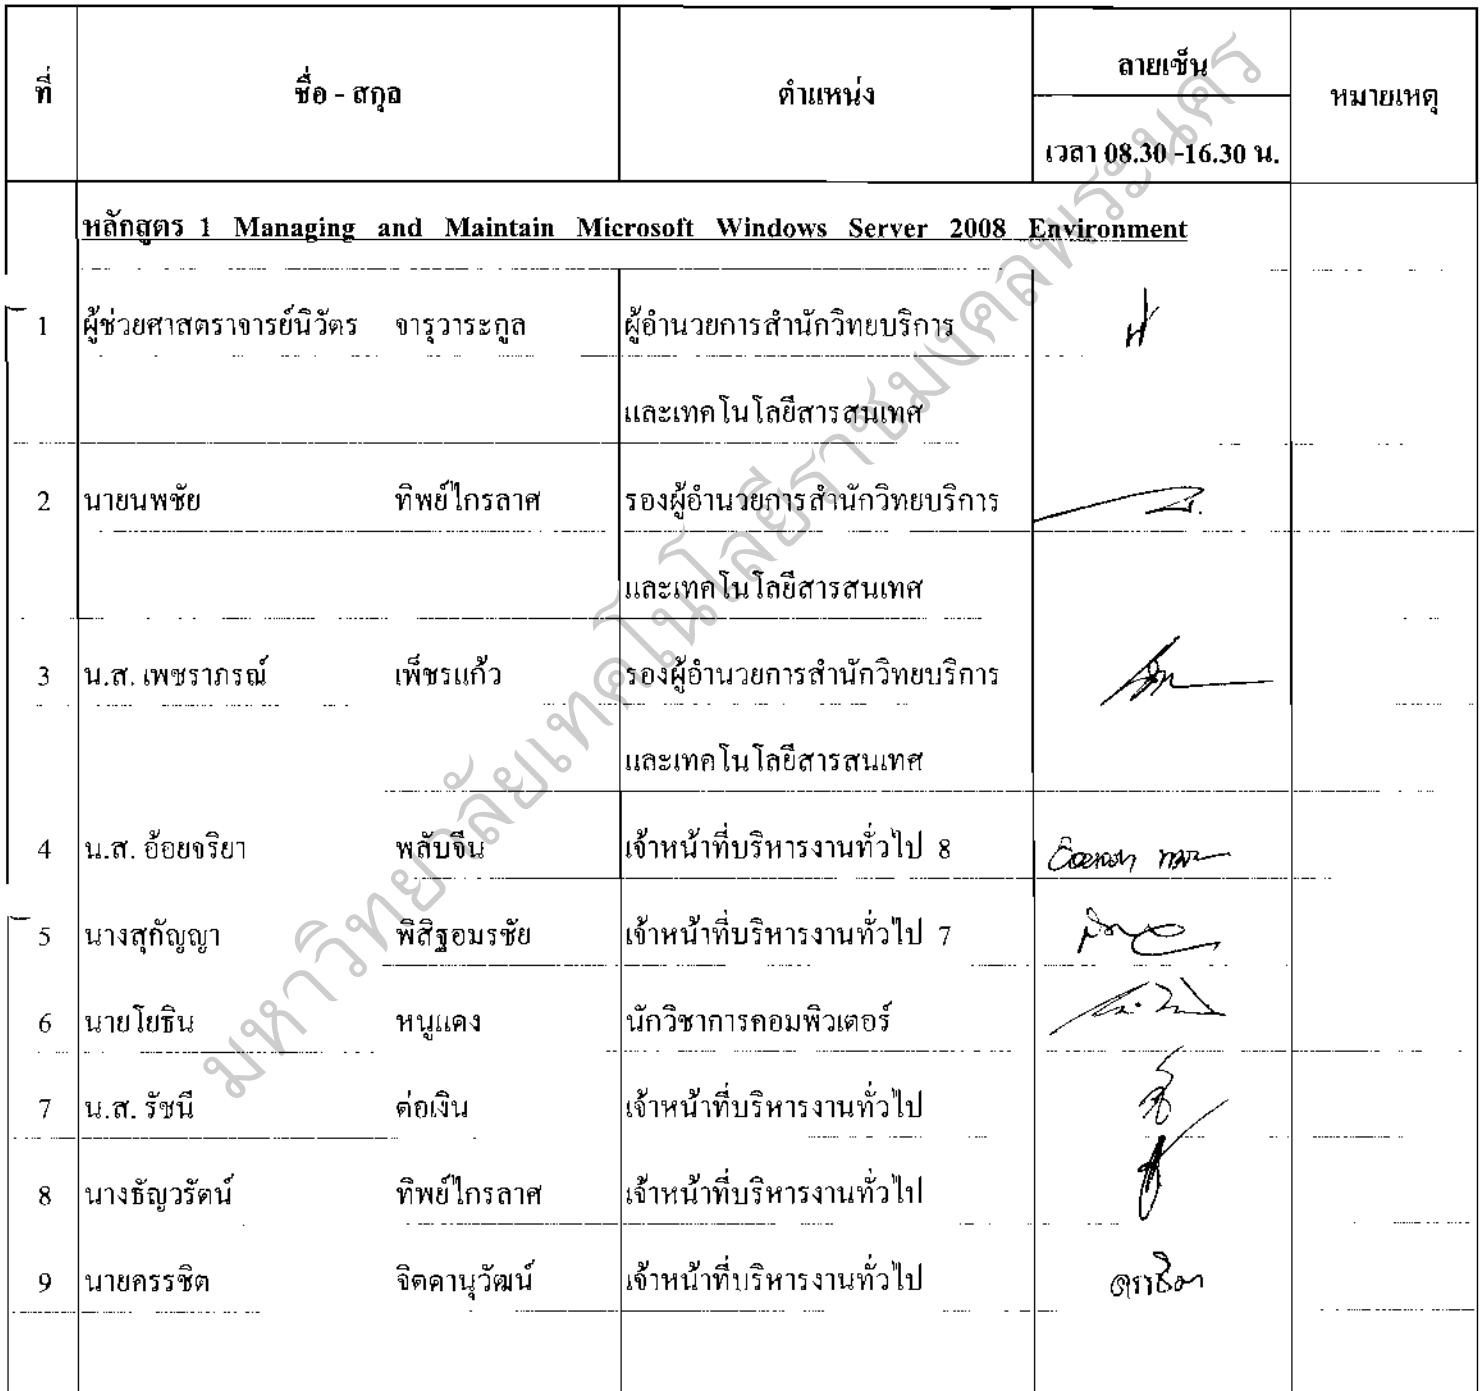 ที่ ชื่อ - สกุล ตำแหน่ง ลายเซ็น หมายเหตุ
เวลา 08.30 -16.30 น.
หลักสูตร 1 Managing and Maintain Microsoft Windows Server 2008 Environment
1 ผู้ช่วยศาสตราจารย์นิวัตร จารุวาระกูล ผู้อำนวยการสำนักวิทยบริการ
และเทคโนโลยีสารสนเทศ
2 นายนพชัย ทิพย์ไกรลาศ รองผู้อำนวยการสำนักวิทยบริการ
และเทคโนโลยีสารสนเทศ
3 น.ส. เพชราภรณ์ เพ็ชรแก้ว รองผู้อำนวยการสำนักวิทยบริการ
และเทคโนโลยีสารสนเทศ
4 น.ส. อ้อยจริยา พลับจีน เจ้าหน้าที่บริหารงานทั่วไป 8
5 นางสุกัญญา พิสิฐอมรชัย เจ้าหน้าที่บริหารงานทั่วไป 7
6 นายโยธิน หนูแดง นักวิชาการคอมพิวเตอร์
7 น.ส. รัชนี ต่อเงิน เจ้าหน้าที่บริหารงานทั่วไป
8 นางธัญวรัตน์ ทิพย์ไกรลาศ เจ้าหน้าที่บริหารงานทั่วไป
9 นายครรชิต จิตคานุวัฒน์ เจ้าหน้าที่บริหารงานทั่วไป
มหาวิทยาลัยเทคโนโลยีราชมงคลพระนคร